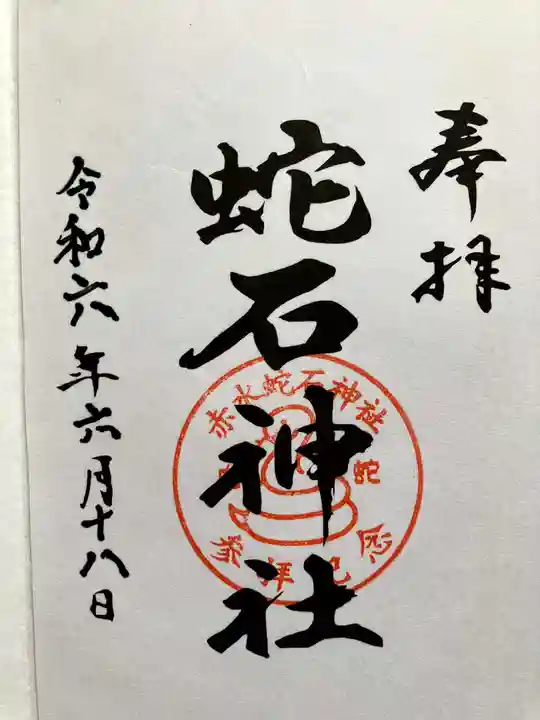 奉拝
蛇石神社
赤水蛇石神社
蛇
参拝記念
令和六年六月十八日